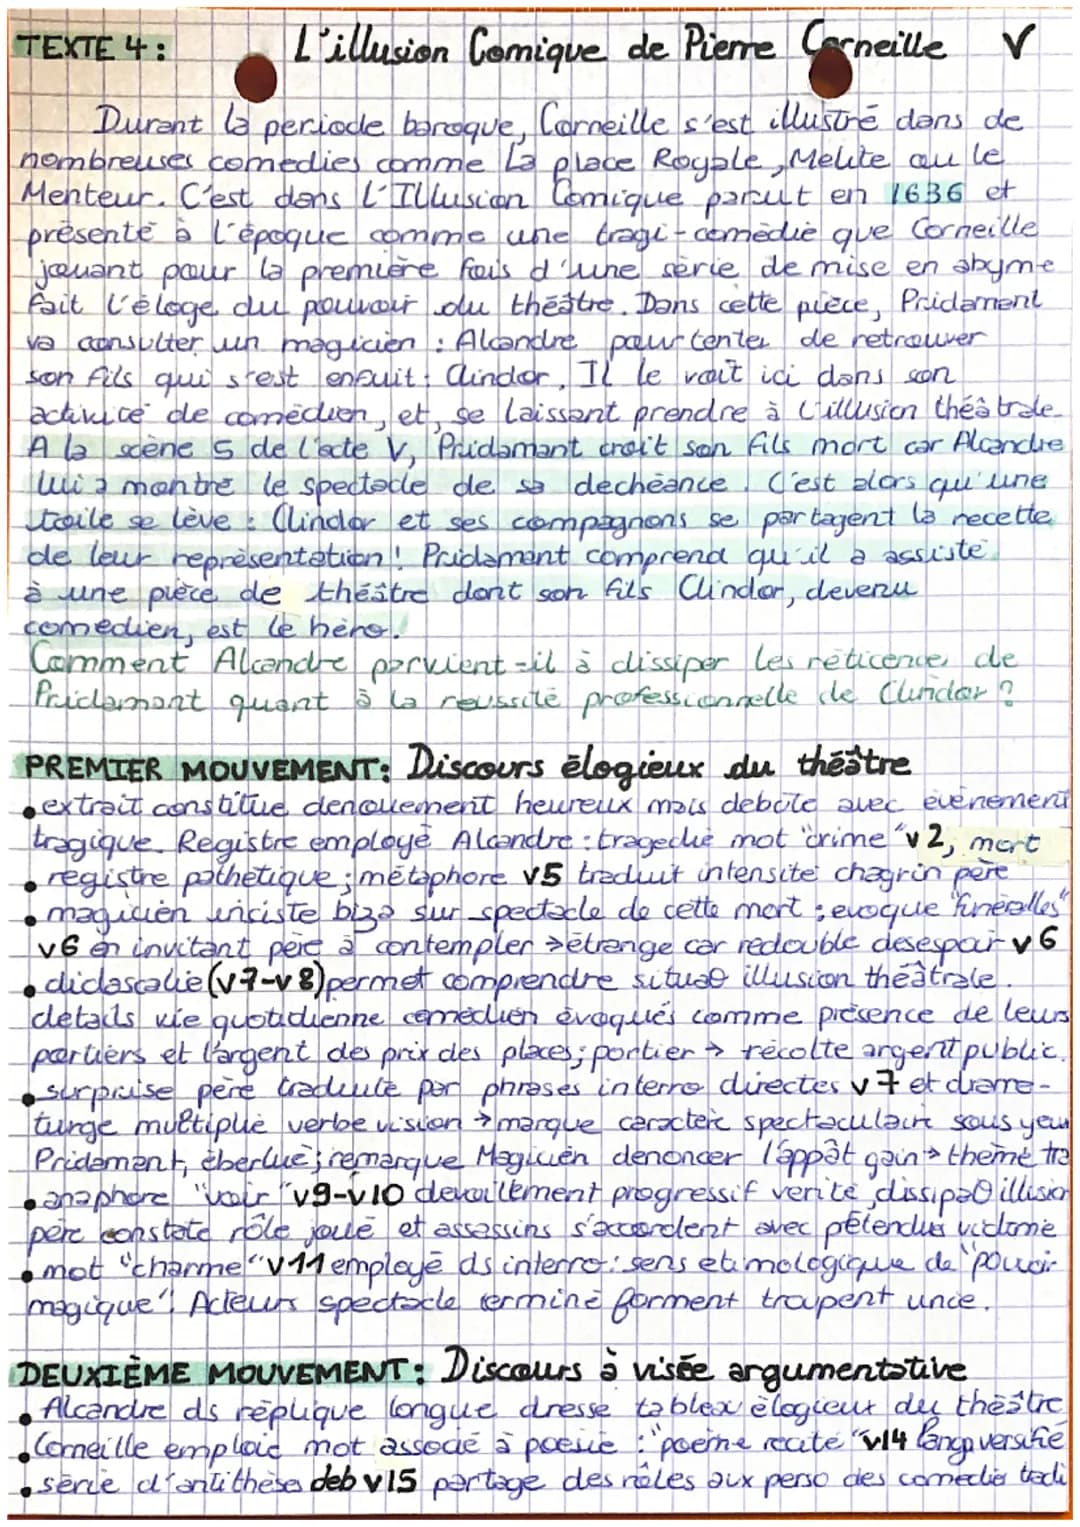 TEXTE 4 : L'illusion Comique de Pierre Corneille V
Durant la periode baroque, Corneille s'est illustré dans de
nombreuses comedies comme La place Royale, Melite ou le
Menteur. C'est dans L'Illusion Comique parut en 1636 et
présenté à l'époque comme une tragi-comédie que Corneille
jouant pour la première fois d'une série de mise en abyme
fait l'éloge du pouvoir du théâtre. Dans cette pièce, Pridamant
va consulter un magicien : Alcandre pour tenter de retrouver
son fils qui s'est enfuit : Clindor. Il le voit ici dans son
activité de comédien, et, se laissant prendre à l'illusion théâtrale
A la scène 5 de l'acte V, Pridamant croit son fils mort car Alcandre
lui a montré le spectacle de sa dechéance. C'est alors qu'une
toile se lève : Clindor et ses compagnons se partagent la recette
de leur représentation! Pridamant comprend qu'il a assisté
à une pièce de théâtre dont son fils Clindor, devenu
comedien, est le héro.
Comment Alcandre parvient-il à dissiper les réticence de
Pridamant quant à la reussite professionnelle de Clindor ?
PREMIER MOUVEMENT: Discours élogieux du théâtre
• extrait constitue denouement heureux mais debute avec évènement
tragique. Registre employé Alcandre : tragedie mot "crime" v2, mort
• registre pathétique ; métaphore v5 traduit intensité chagrin père
• magicien insiste biza sur spectacle de cette mort ; evoque "funéralles"
v6 en invitant père à contempler → étrange car redouble desespoir v6
• didascalie (v7-v8) permet comprendre situa° illusion théâtrale.
détails vie quotidienne comédien évoqués comme présence de leurs
portiers et l'argent des prix des places ; portier → récolte argent public.
• surprise père traduite par phrases interro directes v7 et drama-
turge multiplie verbe vision → marque caractère spectaculaire sous yeux
Pridamant, éberlué ; remarque Magicien denoncer l'appât gain → thème tra
• anaphore "voir" v9-v10 devoillement progressif verité, dissipa° illusion
père constate rôle joué et assassins s'accordent avec pétendus victime
• mot "charme" v11 employé ds interro : sens etimologique de "pouvoir
magique". Acteurs spectacle terminé forment troupent unie.
DEUXIÈME MOUVEMENT: Discours à visée argumentative
• Alcandre ds réplique longue dresse tableau élogieux du théâtre
• Corneille emploie mot associé à poesie : "poème recité" v14 langa versifié
• serie d'antithèses deb v15 partage des rôles aux perso des comedies tradi